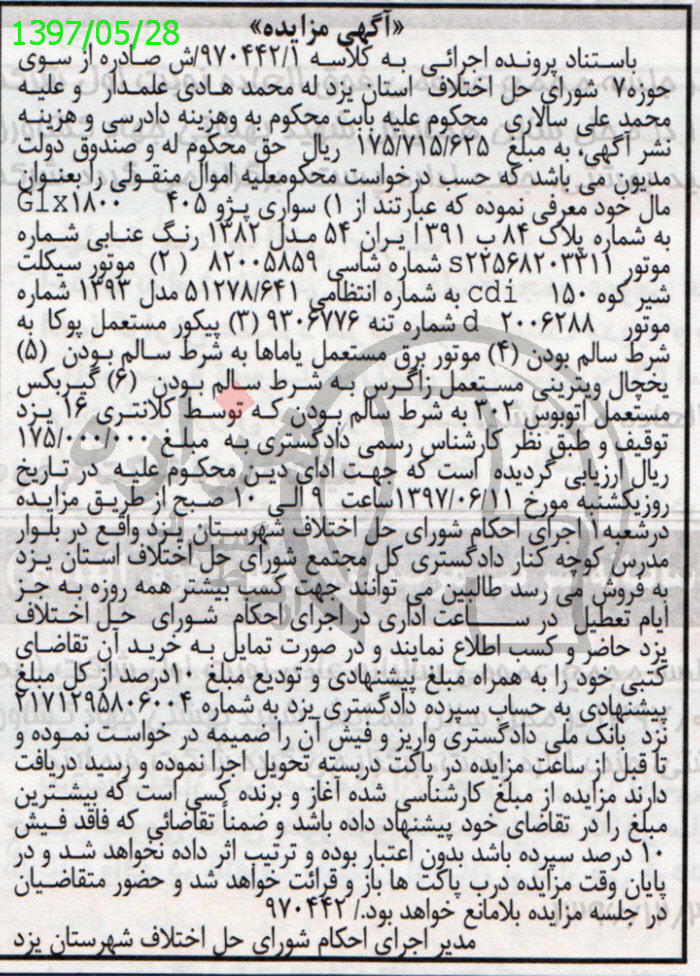 1397/05/28
«آگهی مزایده»
باستناد پرونده اجرائی به کلاسه ۹۷۰۴۴۲/۱/ش صادره از سوی
حوزه۷ شورای حل اختلاف استان یزد له محمد هادی علمدار و علیه
محمد علی سالاری محکوم علیه بابت محکوم به وهزینه دادرسی و هزینه
نشر آگهی، به مبلغ ۱۷۵/۷۱۵/۶۲۵ ریال حق محکوم له و صندوق دولت
مدیون می باشد که حسب درخواست محکومعلیه اموال منقولی را بعنوان
مال خود معرفی نموده که عبارتند از ۱) سواری پژو ۴۰۵ Glx۱۸۰۰
به شماره پلاک ۸۴ ب ۳۹۱ ایران ۵۴ مدل ۱۳۸۲ رنگ عنابی شماره
موتور s۲۲۵۶۸۲۰۳۳۱۱ شماره شاسی ۸۲۰۰۵۸۵۹ (۲) موتور سیکلت
شیر کوه ۱۵۰ cdi به شماره انتظامی ۵۱۲۷۸/۶۴۱ مدل ۱۳۹۳ شماره
موتور d ۲۰۰۶۲۸۸ شماره تنه ۹۳۰۶۷۷۶ (۳) پیکور مستعمل پوکا به
شرط سالم بودن (۴) موتور برق مستعمل یاماها به شرط سالم بودن (۵)
یخچال ویترینی مستعمل زاگرس به شرط سالم بودن (۶) گیربکس
مستعمل اتوبوس ۳۰۲ به شرط سالم بودن که توسط کلانتری ۱۶ یزد
توقیف و طبق نظر کارشناس رسمی دادگستری به مبلغ ۱۷۵/۰۰۰/۰۰۰
ریال ارزیابی گردیده است که جهت ادای دین محکوم علیه در تاریخ
روزیکشنبه مورخ ۱۳۹۷/۰۶/۱۱ساعت ۹ الی ۱۰ صبح از طریق مزایده
درشعبه۱ اجرای احکام شورای حل اختلاف شهرستان یزد واقع در بلوار
مدرس کوچه کنار دادگستری کل مجتمع شورای حل اختلاف استان یزد
به فروش می رسد طالبین می توانند جهت کسب بیشتر همه روزه به جز
ایام تعطیل در ساعت اداری در اجرای احکام شورای حل اختلاف
یزد حاضر و کسب اطلاع نمایند و در صورت تمایل به خرید آن تقاضای
کتبی خود را به همراه مبلغ پیشنهادی و تودیع مبلغ ۱۰درصد از کل مبلغ
پیشنهادی به حساب سپرده دادگستری یزد به شماره ۲۱۷۱۲۹۵۸۰۶۰۰۴
نزد بانک ملی دادگستری واریز و فیش آن را ضمیمه در خواست نموده و
تا قبل از ساعت مزایده در پاکت دربسته تحویل اجرا نموده و رسید دریافت
دارند مزایده از مبلغ کارشناسی شده آغاز و برنده کسی است که بیشترین
مبلغ را در تقاضای خود پیشنهاد داده باشد و ضمناً تقاضائی که فاقد فیش
۱۰ درصد سپرده باشد بدون اعتبار بوده و ترتیب اثر داده نخواهد شد و در
پایان وقت مزایده درب پاکت ها باز و قرائت خواهد شد و حضور متقاضیان
در جلسه مزایده بلامانع خواهد بود./ ۹۷۰۴۴۲
مدیر اجرای احکام شورای حل اختلاف شهرستان یزد